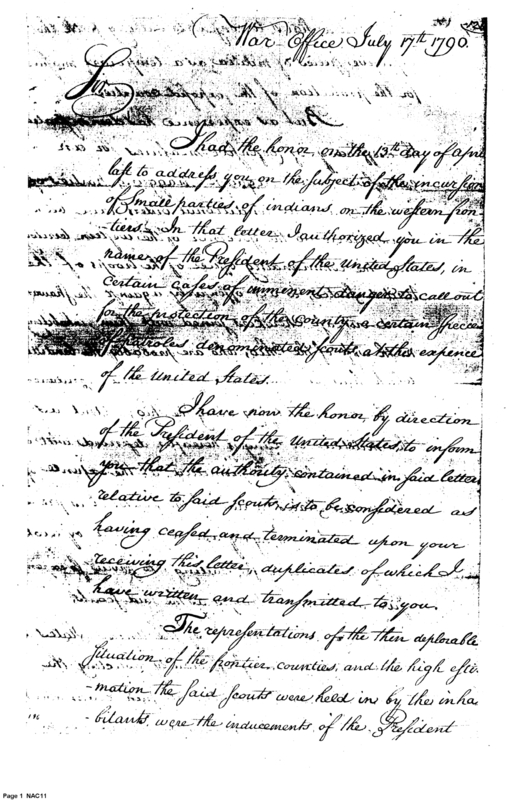 War Office July 17th 1790.
Sir
I had the honor, on the 13th day of Apri
last to address you, on the subject of the incursions
of Small parties of indians, on the western fron-
tiers. In that letter I authorized you in the
name of the President of the United States, in
certain cases of imminent danger, to call out
for the protection of the county, a certain species
of patroles denominated scouts at the expence
of the United States.
I have now the honor, by direction
of the President of the United States, to inform
you that the authority contained in said letter
relative to said scouts, is to be considered as
having ceased and terminated upon your
receiving this letter, duplicates of which I
have written and transmitted to you.
The representations of the then deplorable
situation of the frontier counties, and the high esti
-mation the said scouts were held in by the inha
-bitants were the inducements of the President
Page 1 NAC11